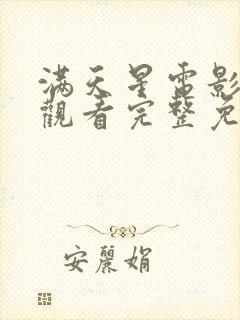 满天星電影
觀看完整免
安麗娟